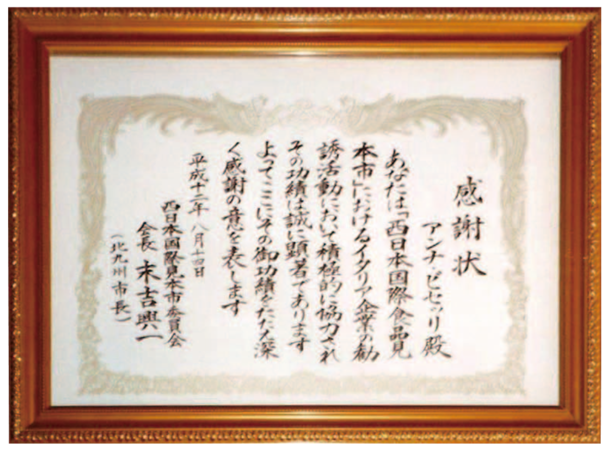 感謝状
アンナ・ビセッリ殿
あなたは「西日本国際食品見
本市」におけるイタリア企業の勧
誘活動において積極的に協力され
その功績は誠に顕著であります
よってここにその御功績をたたえ深
く感謝の意を表します
平成十二年八月十四日
西日本国際見本市委員会
会長 末吉興一
(北九州市長)